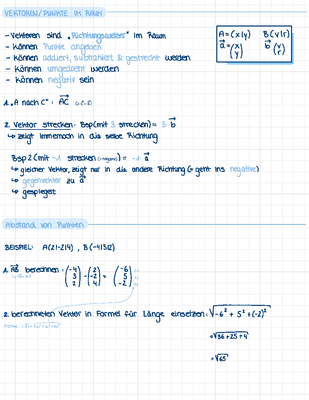 VEKTOREN/PUNKTE IM RAUM
-Vektoren sind „Richtungsweiser" im Raum
- können Punkte angeben
- können addiert, subtrahiert & gestreckt werden
- können umgedreht werden
- können negativ sein
A=(x|y) B(v|r)
a⃗=(x y) b⃗(v r)
1. „A nach C" = AC⃗
2. Vektor strecken: Bsp(mit 3 strecken)= 3·b⃗
↳ zeigt immernoch in die selbe Richtung
Bsp 2(mit -1 strecken)= -1·a⃗
↳ gleicher Vektor, zeigt nur in die andere Richtung(=geht ins negative)
↳ gegenvektor zu a⃗
↳ gespiegelt
Abstand von Punkten
BEISPIEL: A(2|-2|4), B(-4|3|2)
1. AB⃗ berechnen: (-4 3 2) - (2 -2 4) = (-6 5 -2)
2. berechneten Vektor in Formel für Länge einsetzen: √-6² + 5² + (-2)²
=√36+25+4
=√65